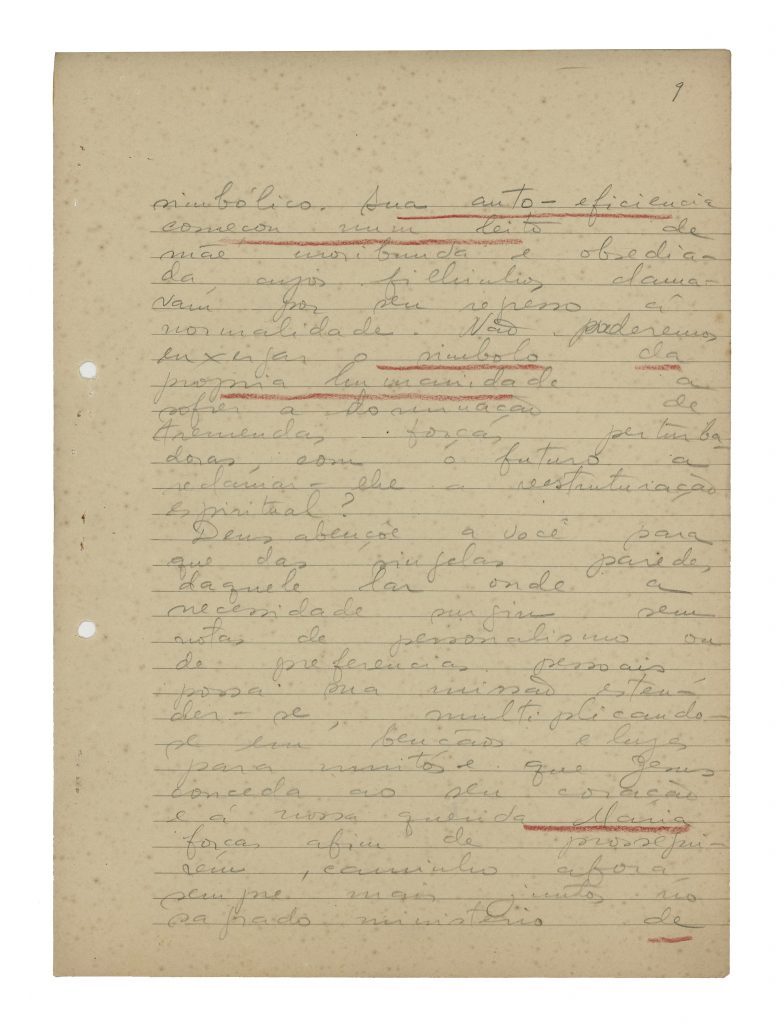 9
simbólico. Sua auto-eficiencia
começou num leito de
mãe moribunda e obsedia-
da cujos filhinhos clama-
vam por seu regresso á
normalidade. Não poderemos
enxergar o simbolo da
propria humanidade a
sofrer a dominação de
tremendas forças perturba-
doras com o futuro a
reclamar-lhe a reestruturação
espiritual?
Deus abençôe a você para
que das singelas paredes
daquele lar onde a
necessidade surgiu sem
notas de personalismo ou
de preferencias pessoais
possa sua missão esten-
der-se, multiplicando-
se em bençãos e luzes
para muitos e que Jesus
conceda ao seu coração
e á nossa querida Maria
forças afim de prossegui-
rem, caminho afora
sempre mais juntos no
sagrado ministério de